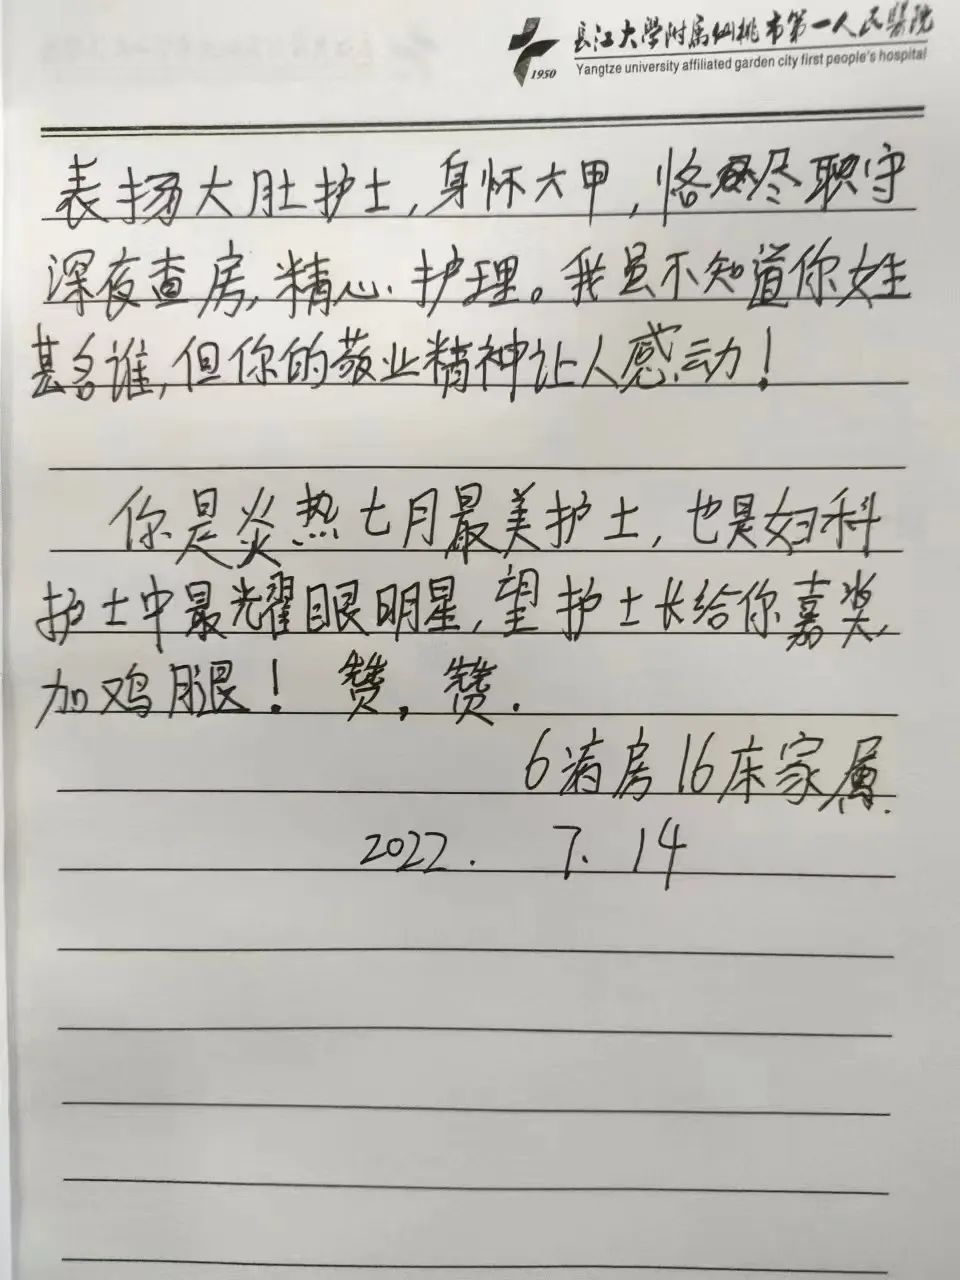 長江大学附属仙桃市第一人民醫院
Yangtze university affiliated garden city first people's hospital
1950
表扬大肚护士,身怀六甲,恪尽职守
深夜查房,精心护理。我虽不知道你女生
甚名谁,但你的敬业精神让人感动!
你是炎热七月最美护士,也是妇科
护士中最耀眼明星,望护士长给你嘉奖,
加鸡腿!赞,赞.
6病房16床家属.
2022. 7. 14